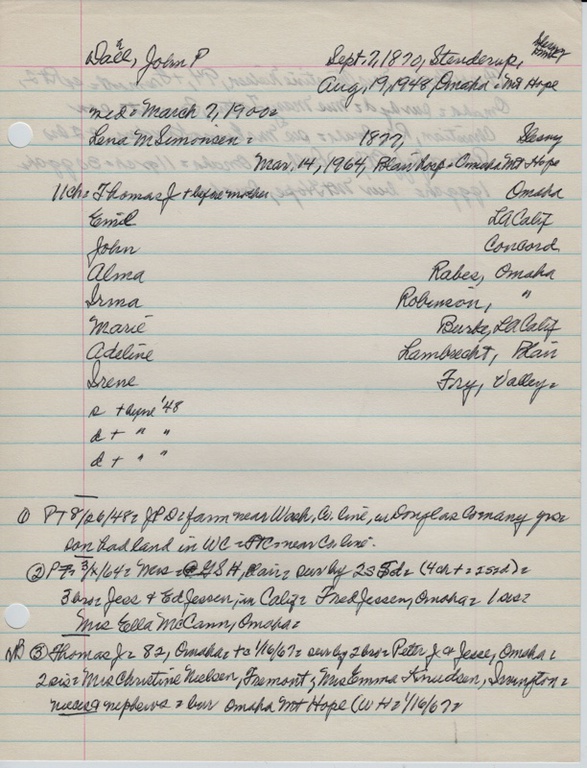 Dall, John P Sept. 7, 1870, Stenderup,
Aug, 19, 1948, Omaha = Mt Hope
md = March 7, 1900 =
Lena M Simonsen = 1877,
Mar. 14, 1964, Blair Hosp = Omaha Mt Hope
11 ch = Thomas J + before mother Omaha
Emil LA Calif
John Concord
Alma Rabes, Omaha
Irma Robinson, "
Marie Burke, LA Calif
Adeline Lambrecht, Blair
Irene Fry, Valley =
s + before '48
d + " "
d + " "
① PT 8/26/48 = JPD = farm near Wash, Co. line, in Douglas Co many yrs =
son had land in WC = PTC = near Co. line.
② PT 3/ /64 = Mrs = GSH, Blair = sur by 2s 5d = (4ch + = 2s 2d) =
3 bro = Jess & Ed Jessen, in Calif = Fred Jessen, Omaha = 1 sis =
Mrs Ella McCann, Omaha =
NB ③ Thomas J = 82, Omaha = + c 1/16/67 = sur by 2 bro = Peter J & Jesse, Omaha =
2 sis = Mrs Christine Nielsen, Fremont, Mrs Emma Knudsen, Irvington =
nieces & nephews = bur Omaha Mt Hope (WH = 1/16/67 =